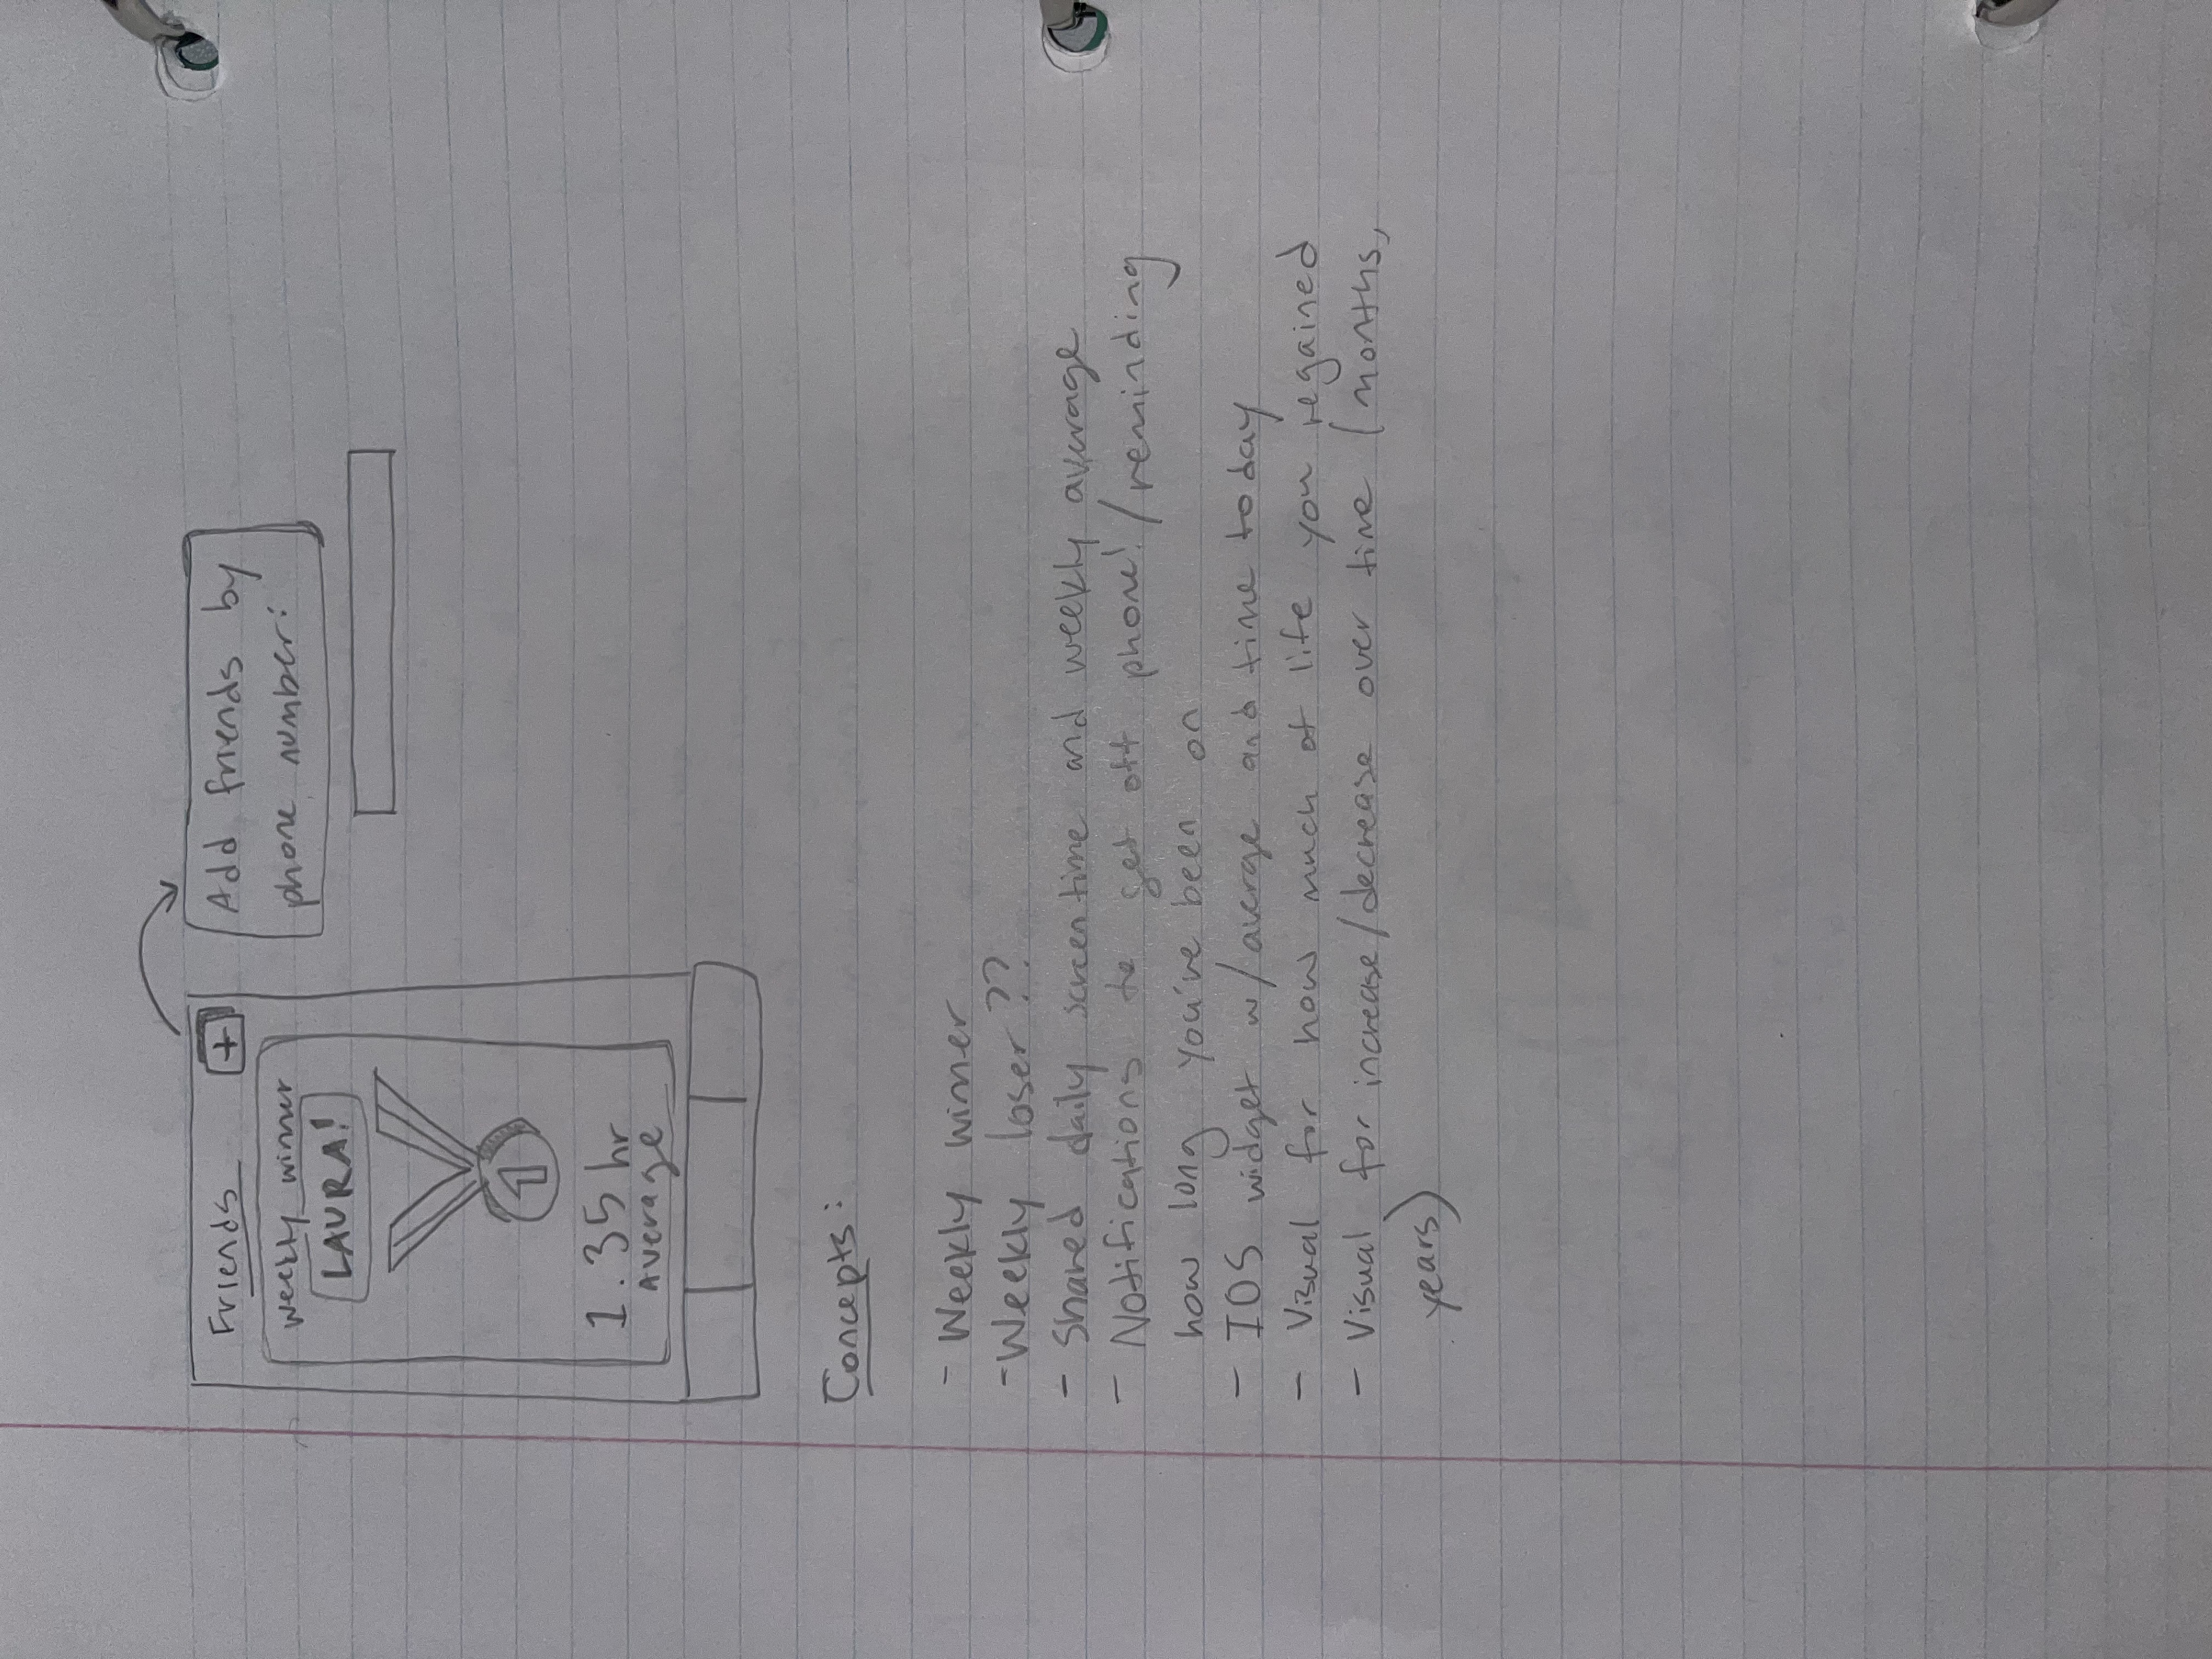 Friends +
Weekly winner
LAURA!
1
1.35 hr
Average
Add friends by
phone number:
Concepts:
- Weekly winner
- Weekly loser??
- Shared daily screentime and weekly average
- Notifications to get off phone! / reminding
how long you've been on
- IOS widget w/ averge and time today
- Visual for how much of life you regained
- Visual for increase/decrease over time (months,
years)